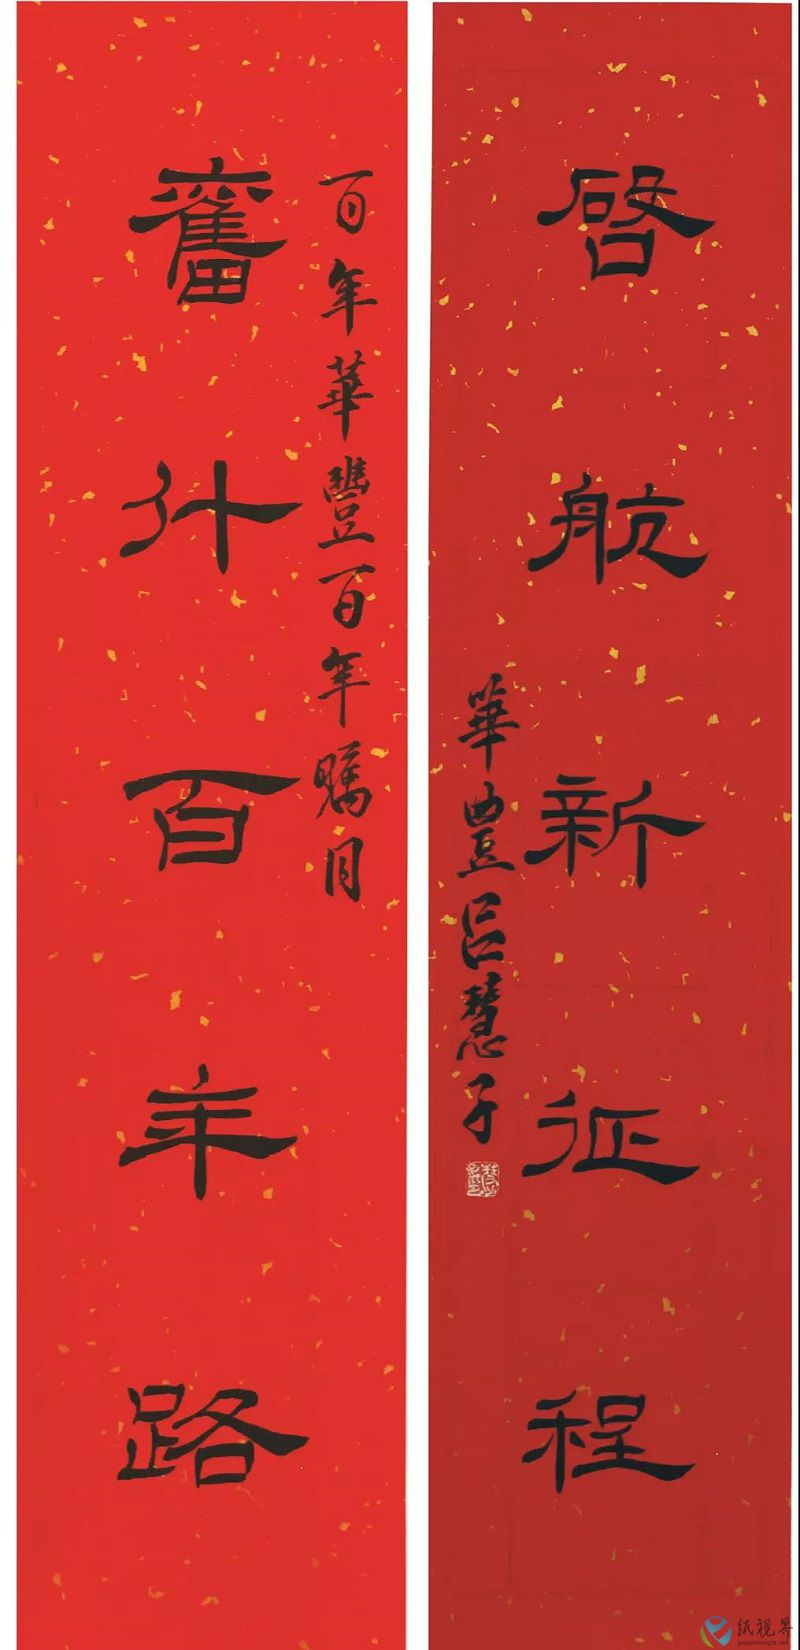 奮斗百年路
百年華豐百年矚目
啓航新征程
華豐呂慧子
纸视界
paperinsight.net